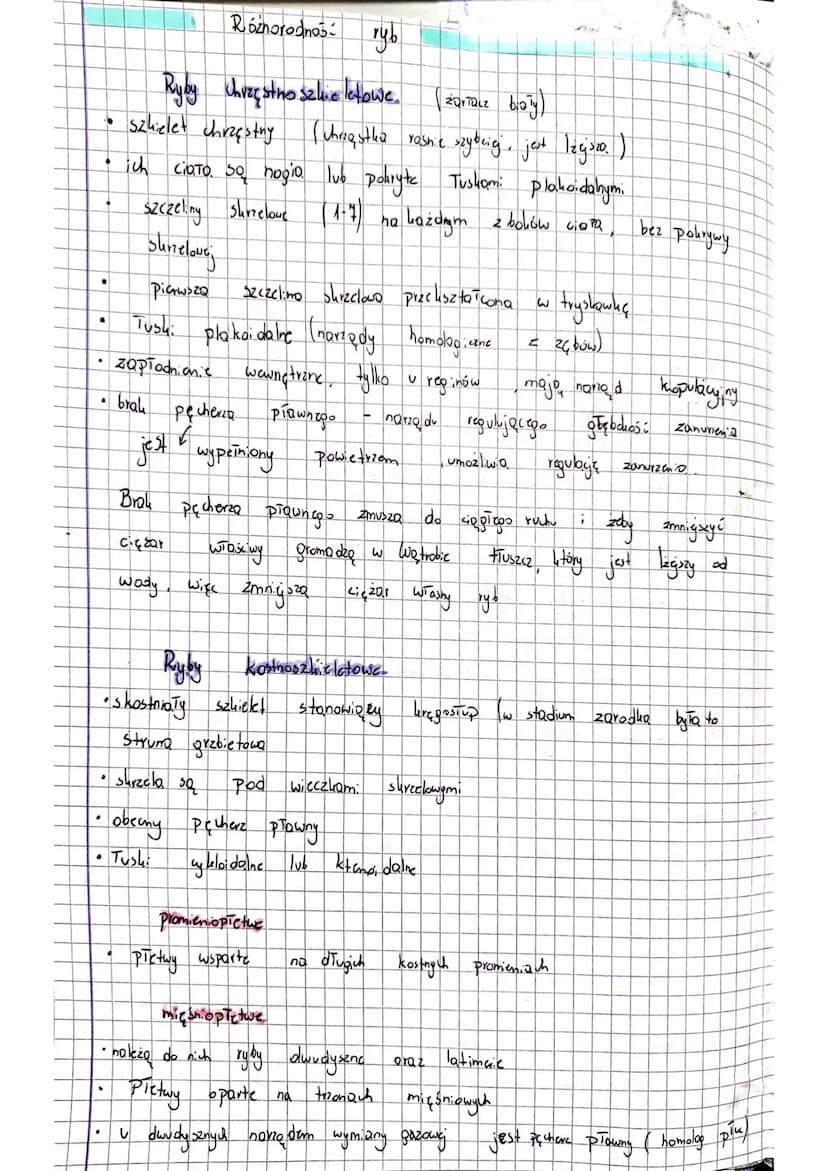 Różnorodność ryb
Ryby chrzęstnoszkieletowe. (żarłacz biały)
• szkielet chrzęstny (chrząstka rośnie szybciej, jest lżejsza.)
• ich ciała są nagie lub pokryte łuskami plakoidalnymi
• szczeliny skrzelowe (1-7) na każdym z boków ciała, bez pokrywy
skrzelowej
• pierwsza szczelina skrzelowa przekształcona w tryskawkę
• łuski plakoidalne (narządy homologiczne z zębów)
• zapłodnienie wewnętrzne, tylko u reginów, mają narząd kopulacyjny
• brak pęcherza pławnego - narządu regulującego głębokość zanurzenia
jest wypełniony powietrzem, umożliwia regulację zanurzenia.
Brak pęcherza pławnego zmusza do ciągłego ruchu i żeby zmniejszyć
ciężar właściwy gromadzą w wątrobie tłuszcz, który jest lżejszy od
wody, więc zmniejsza ciężar własny ryb
Ryby kostnoszkieletowe
• skostniały szkielet stanowiący kręgosłup (w stadium zarodka była to
struna grzbietowa
• skrzela są pod wieczkami skrzelowymi
• obecny pęcherz pławny
• łuski cykloidalne lub ktenoidalne
promieniopłetwe
• płetwy wsparte na długich kostnych promieniach
mięśniopłetwe
• należą do nich ryby dwudyszne oraz latimerie
• Płetwy oparte na trzonach mięśniowych
• u dwudysznych narządem wymiany gazowej jest pęcherz pławny (homolog płuc)